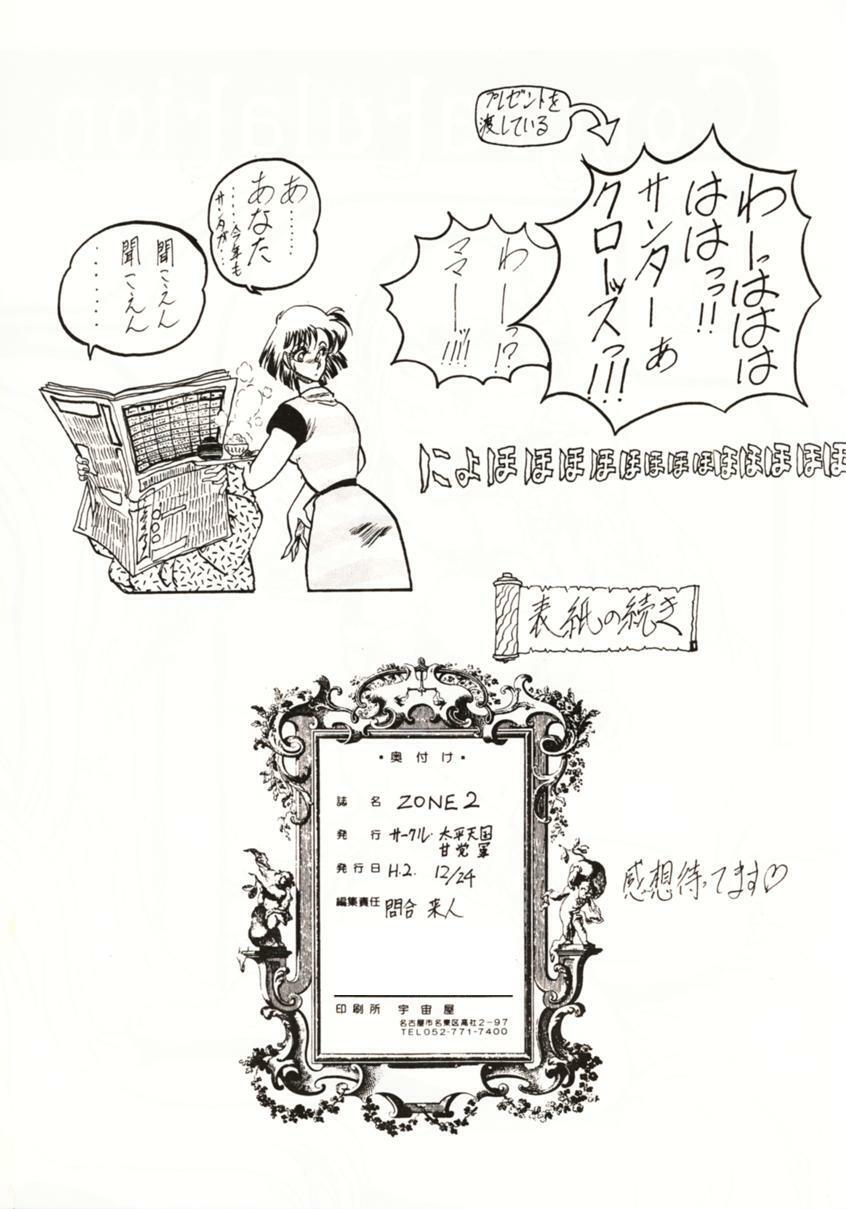 プレゼントを
渡している
わーっははは
ははっ!!
サンターぁ
クローッスっ!!!
わーっ!?
ママーッ!!!!
あ……
あなた
……今年も
サンタが…
聞こえん
聞こえん
……
にょほほほほほほほほほほほほ
表紙の続き
・奥付け・
誌名 ZONE2
発行 サークル・太平天国
甘党軍
発行日 H.2. 12/24
編集責任 問合 来人
印刷所 宇宙屋
名古屋市名東区高社2-97
TEL052-771-7400
感想待ってます♡